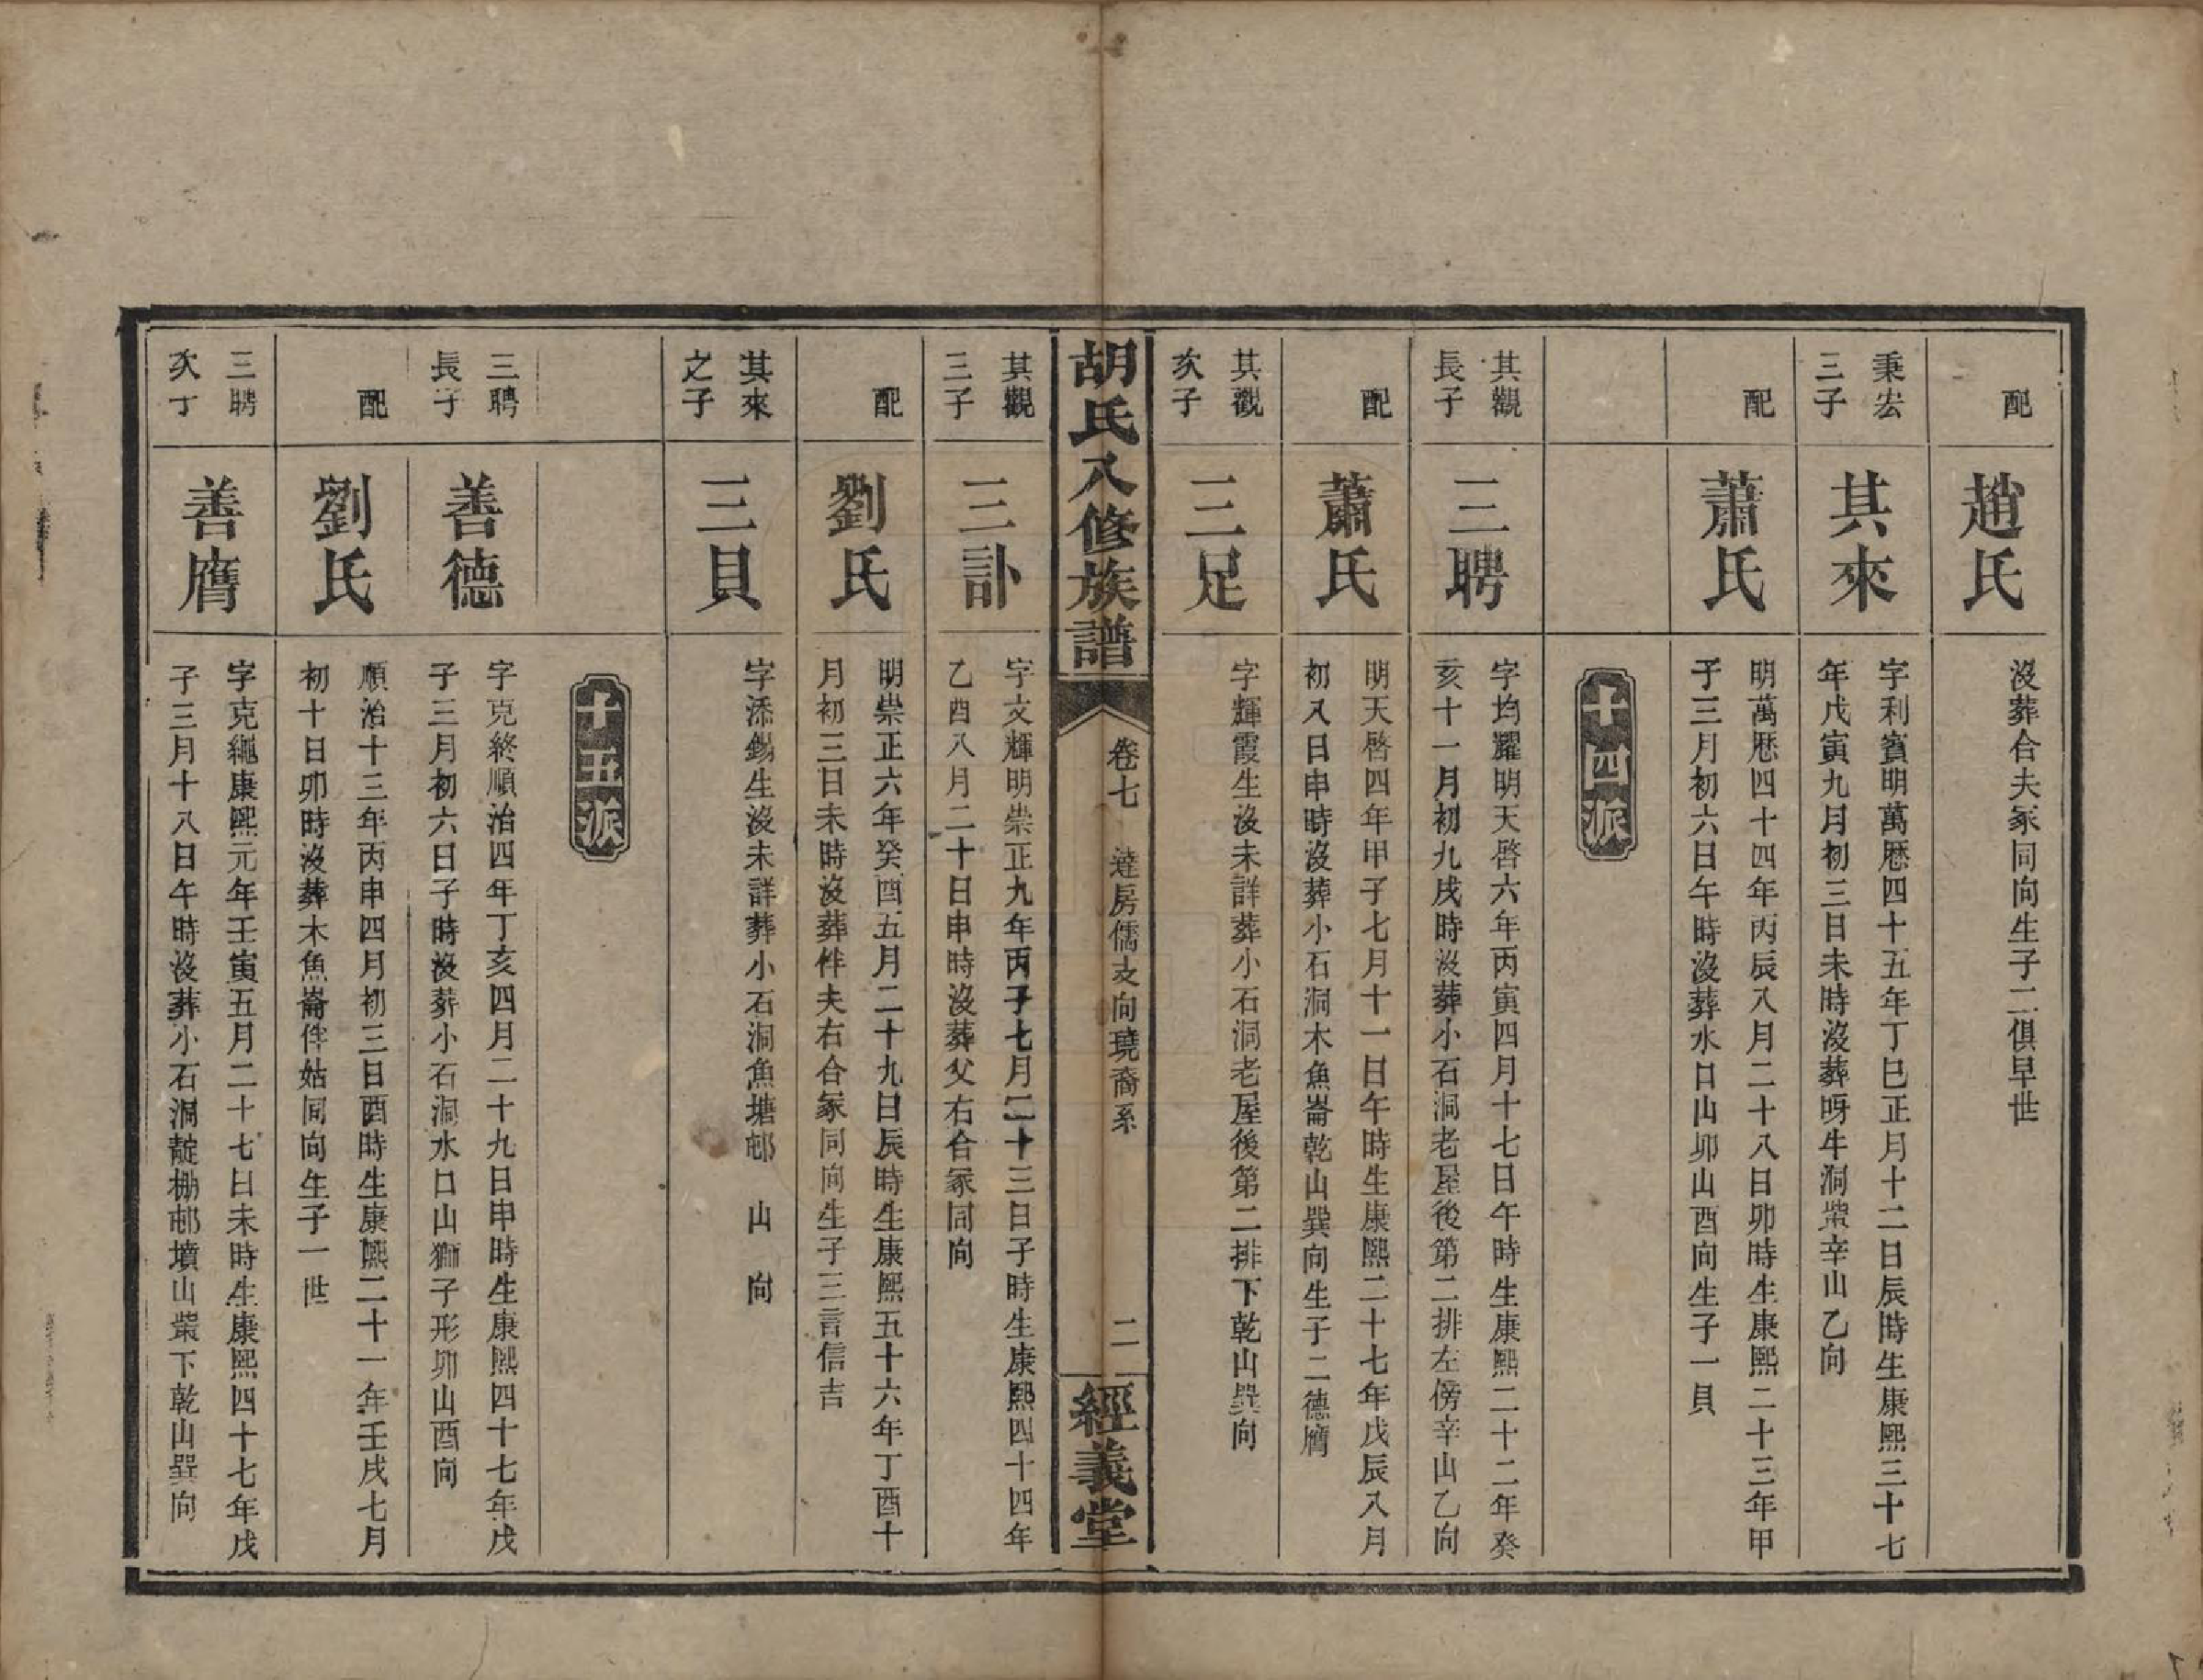 配
趙氏
沒葬合夫冢同向生子二俱早世
秉宏
三子
其來
字利賓明萬厯四十五年丁巳正月十二日辰時生康熙三十七
年戊寅九月初三日未時沒葬呀牛洞棠辛山乙向
配
蕭氏
明萬厯四十四年丙辰八月二十八日卯時生康熙二十三年甲
子三月初六日午時沒葬水口山卯山酉向生子一貝
十四派
其觀
長子
三聘
字均耀明天啓六年丙寅四月十七日午時生康熙二十二年癸
亥十一月初九戌時沒葬小石洞老屋後第二排左傍辛山乙向
配
蕭氏
明天啓四年甲子七月十一日午時生康熙二十七年戊辰八月
初八日申時沒葬小石洞木魚崙乾山巽向生子二德膺
其觀
次子
三足
字輝霞生沒未詳葬小石洞老屋後第二排下乾山巽向
胡氏八修族譜
卷七
達房儒支向璄裔系
二
經義堂
其觀
三子
三訃
字文輝明崇正九年丙子七月二十三日子時生康熙四十四年
乙酉八月二十日申時沒葬父右合冢同向
配
劉氏
明崇正六年癸酉五月二十九日辰時生康熙五十六年丁酉十
月初三日未時沒葬伴夫右合冢同向生子三言信吉
其來
之子
三貝
字添錫生沒未詳葬小石洞魚塘邨 山 向
十五派
三聘
長子
善德
字克終順治四年丁亥四月二十九日申時生康熙四十七年戊
子三月初六日子時沒葬小石洞水口山獅子形卯山酉向
配
劉氏
順治十三年丙申四月初三日酉時生康熙二十一年壬戌七月
初十日卯時沒葬木魚崙伴姑同向生子一世
三聘
次丁
善膺
字克繩康熙元年壬寅五月二十七日未時生康熙四十七年戊
子三月十八日午時沒葬小石洞靛棚邨墳山棠下乾山巽向